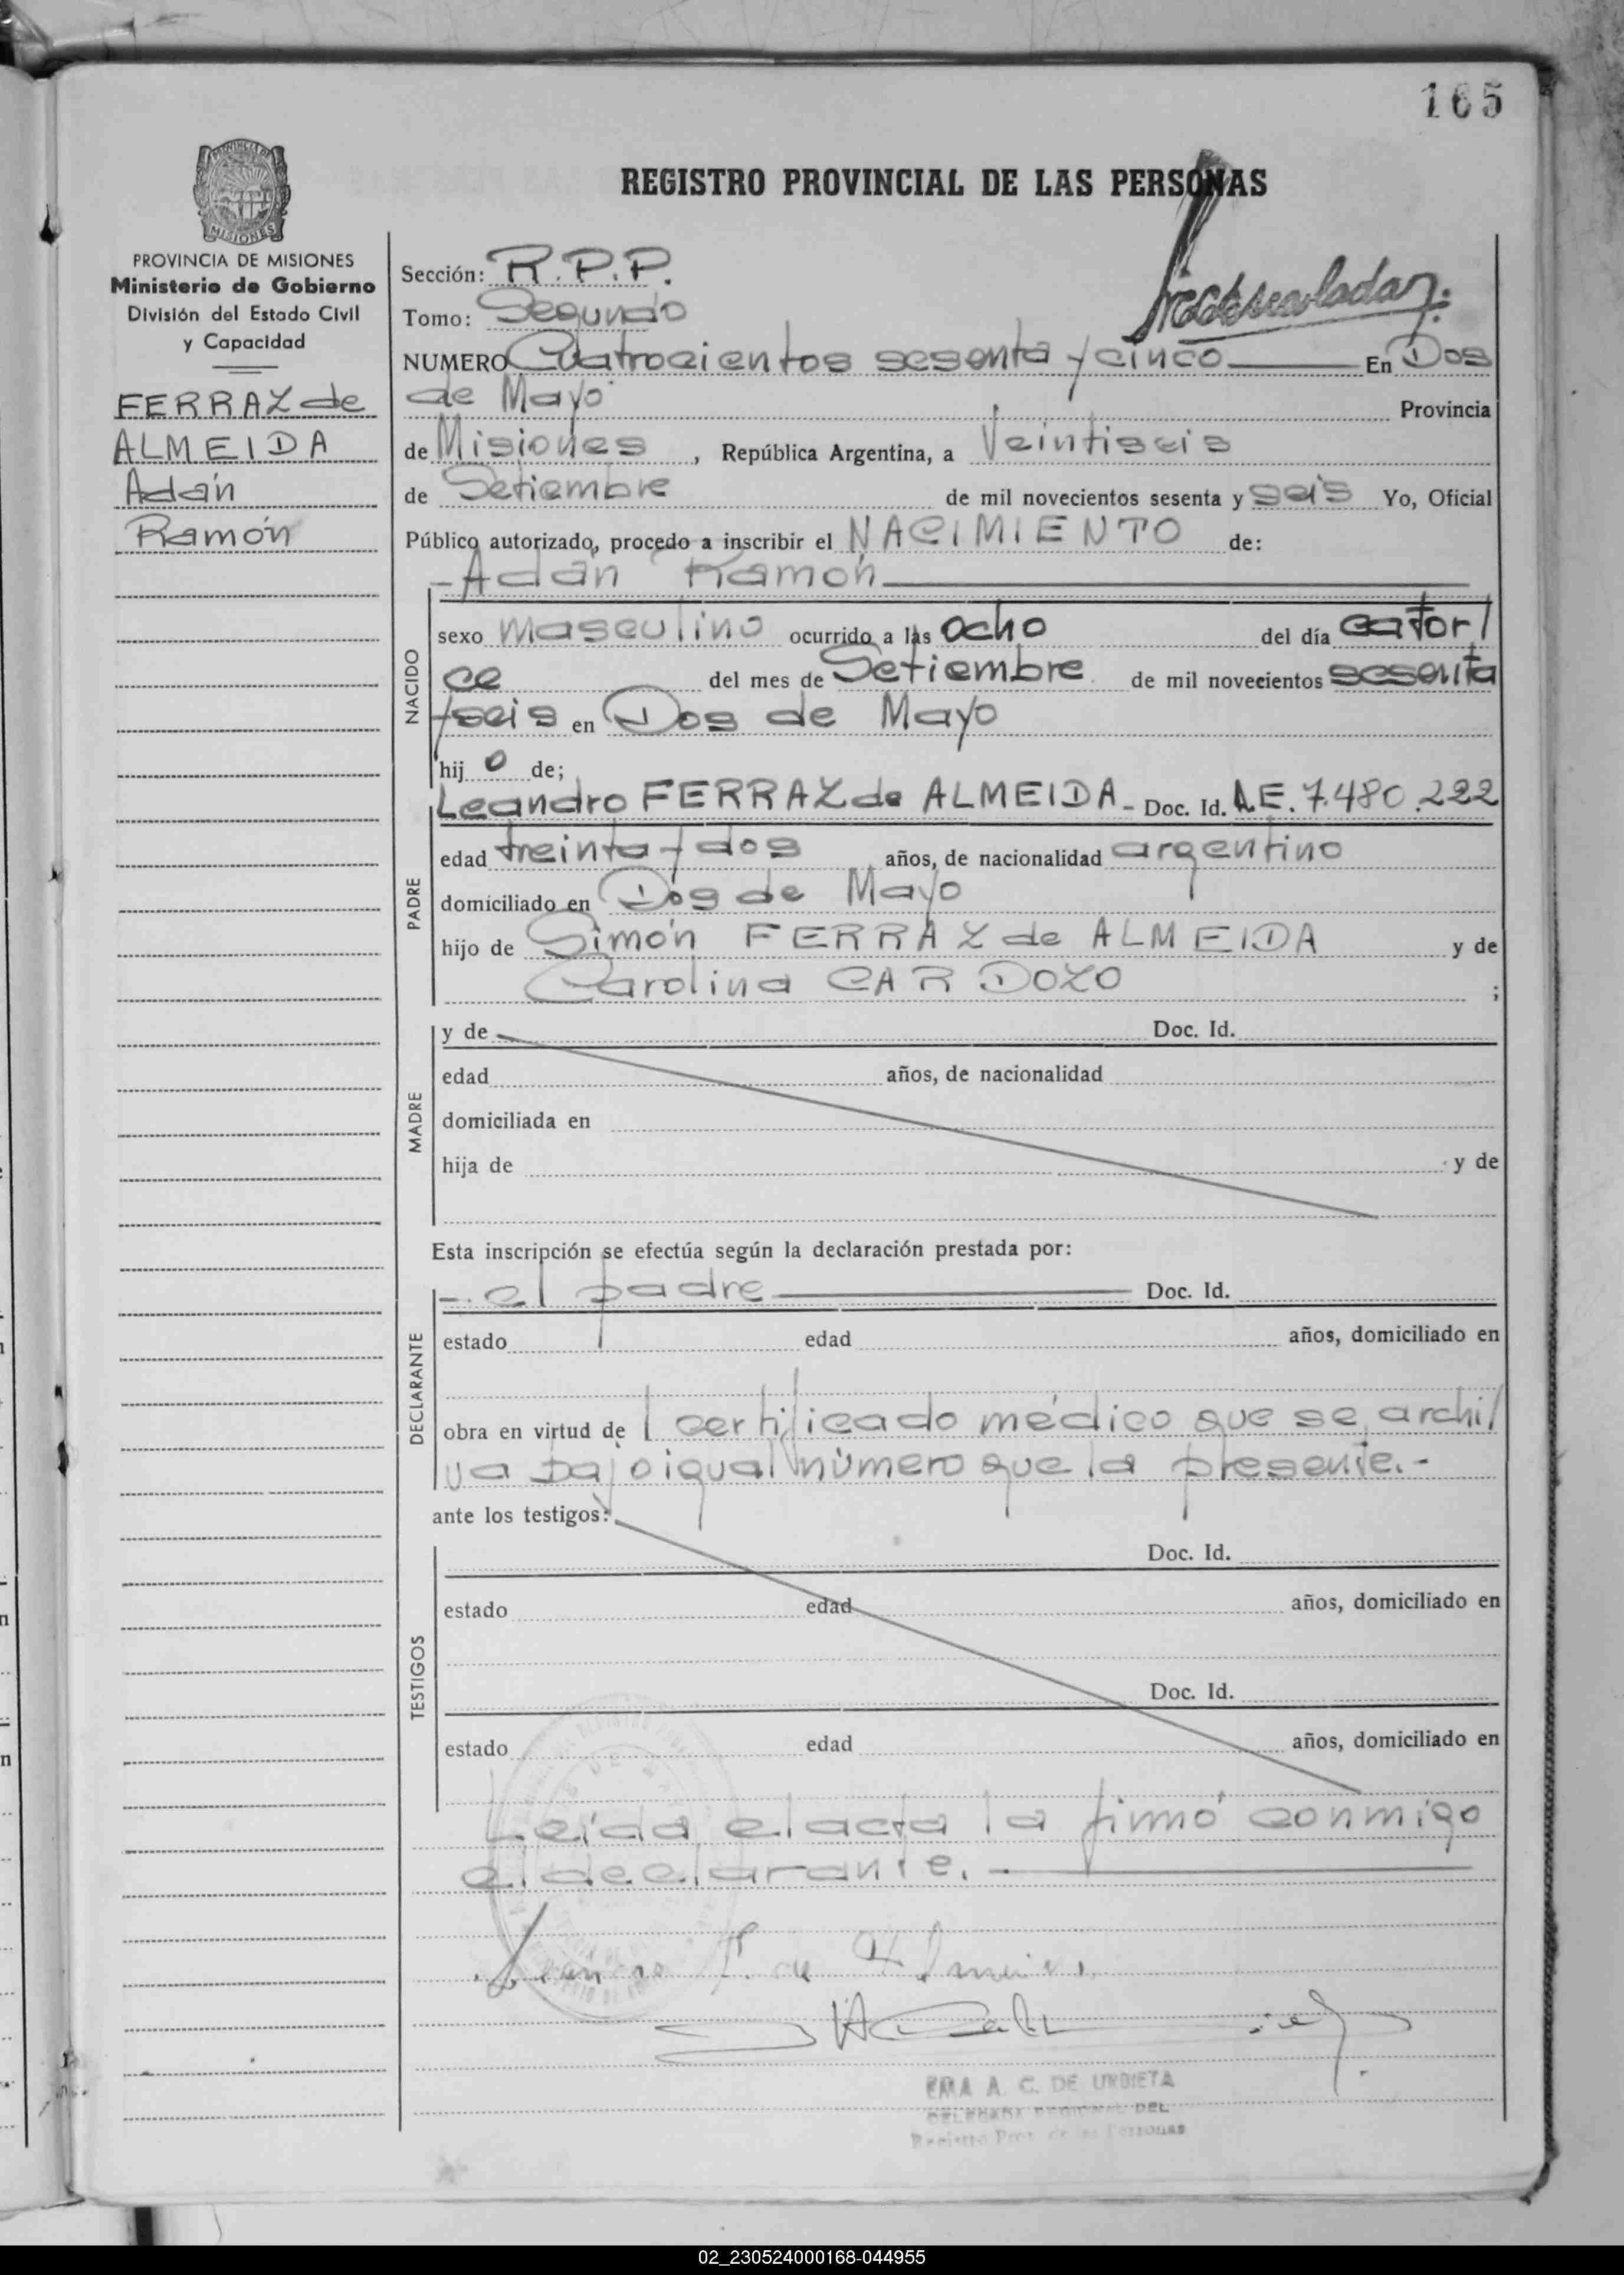 165
PROVINCIA DE
MISIONES
REGISTRO PROVINCIAL DE LAS PERSONAS
PROVINCIA DE MISIONES
Ministerio de Gobierno
División del Estado Civil
y Capacidad
FERRAZ de
ALMEIDA
Adán
Ramón
Sección: R.P.P.
Tomo: Segundo
NUMERO Cuatrocientos sesenta y cinco En Dos
de Mayo Provincia
de Misiones, República Argentina, a Veintiseis
de Setiembre de mil novecientos sesenta y seis Yo, Oficial
Público autorizado, procedo a inscribir el NACIMIENTO de:
- Adán Ramón
NACIDO
sexo masculino ocurrido a las ocho del día cator/
ce del mes de Setiembre de mil novecientos sesenta
y seis en Dos de Mayo
hij o de;
PADRE
Leandro FERRAZ de ALMEIDA - Doc. Id. L.E. 7.480.222
edad treinta y dos años, de nacionalidad argentino
domiciliado en Dos de Mayo
hijo de Simón FERRAZ de ALMEIDA y de
Carolina CARDOZO ;
MADRE
y de Doc. Id.
edad años, de nacionalidad
domiciliada en
hija de y de
Esta inscripción se efectúa según la declaración prestada por:
DECLARANTE
- el padre Doc. Id.
estado edad años, domiciliado en
obra en virtud de l certificado médico que se archi/
va bajo igual número que la presente.-
ante los testigos:
TESTIGOS
Doc. Id.
estado edad años, domiciliado en
Doc. Id.
estado edad años, domiciliado en
Leída el acta la firmó conmigo
el declarante. -
EMA A. C. DE URBIETA
DELEGADA REGIONAL DEL
Registro Prov. de las Personas
02_230524000168-044955